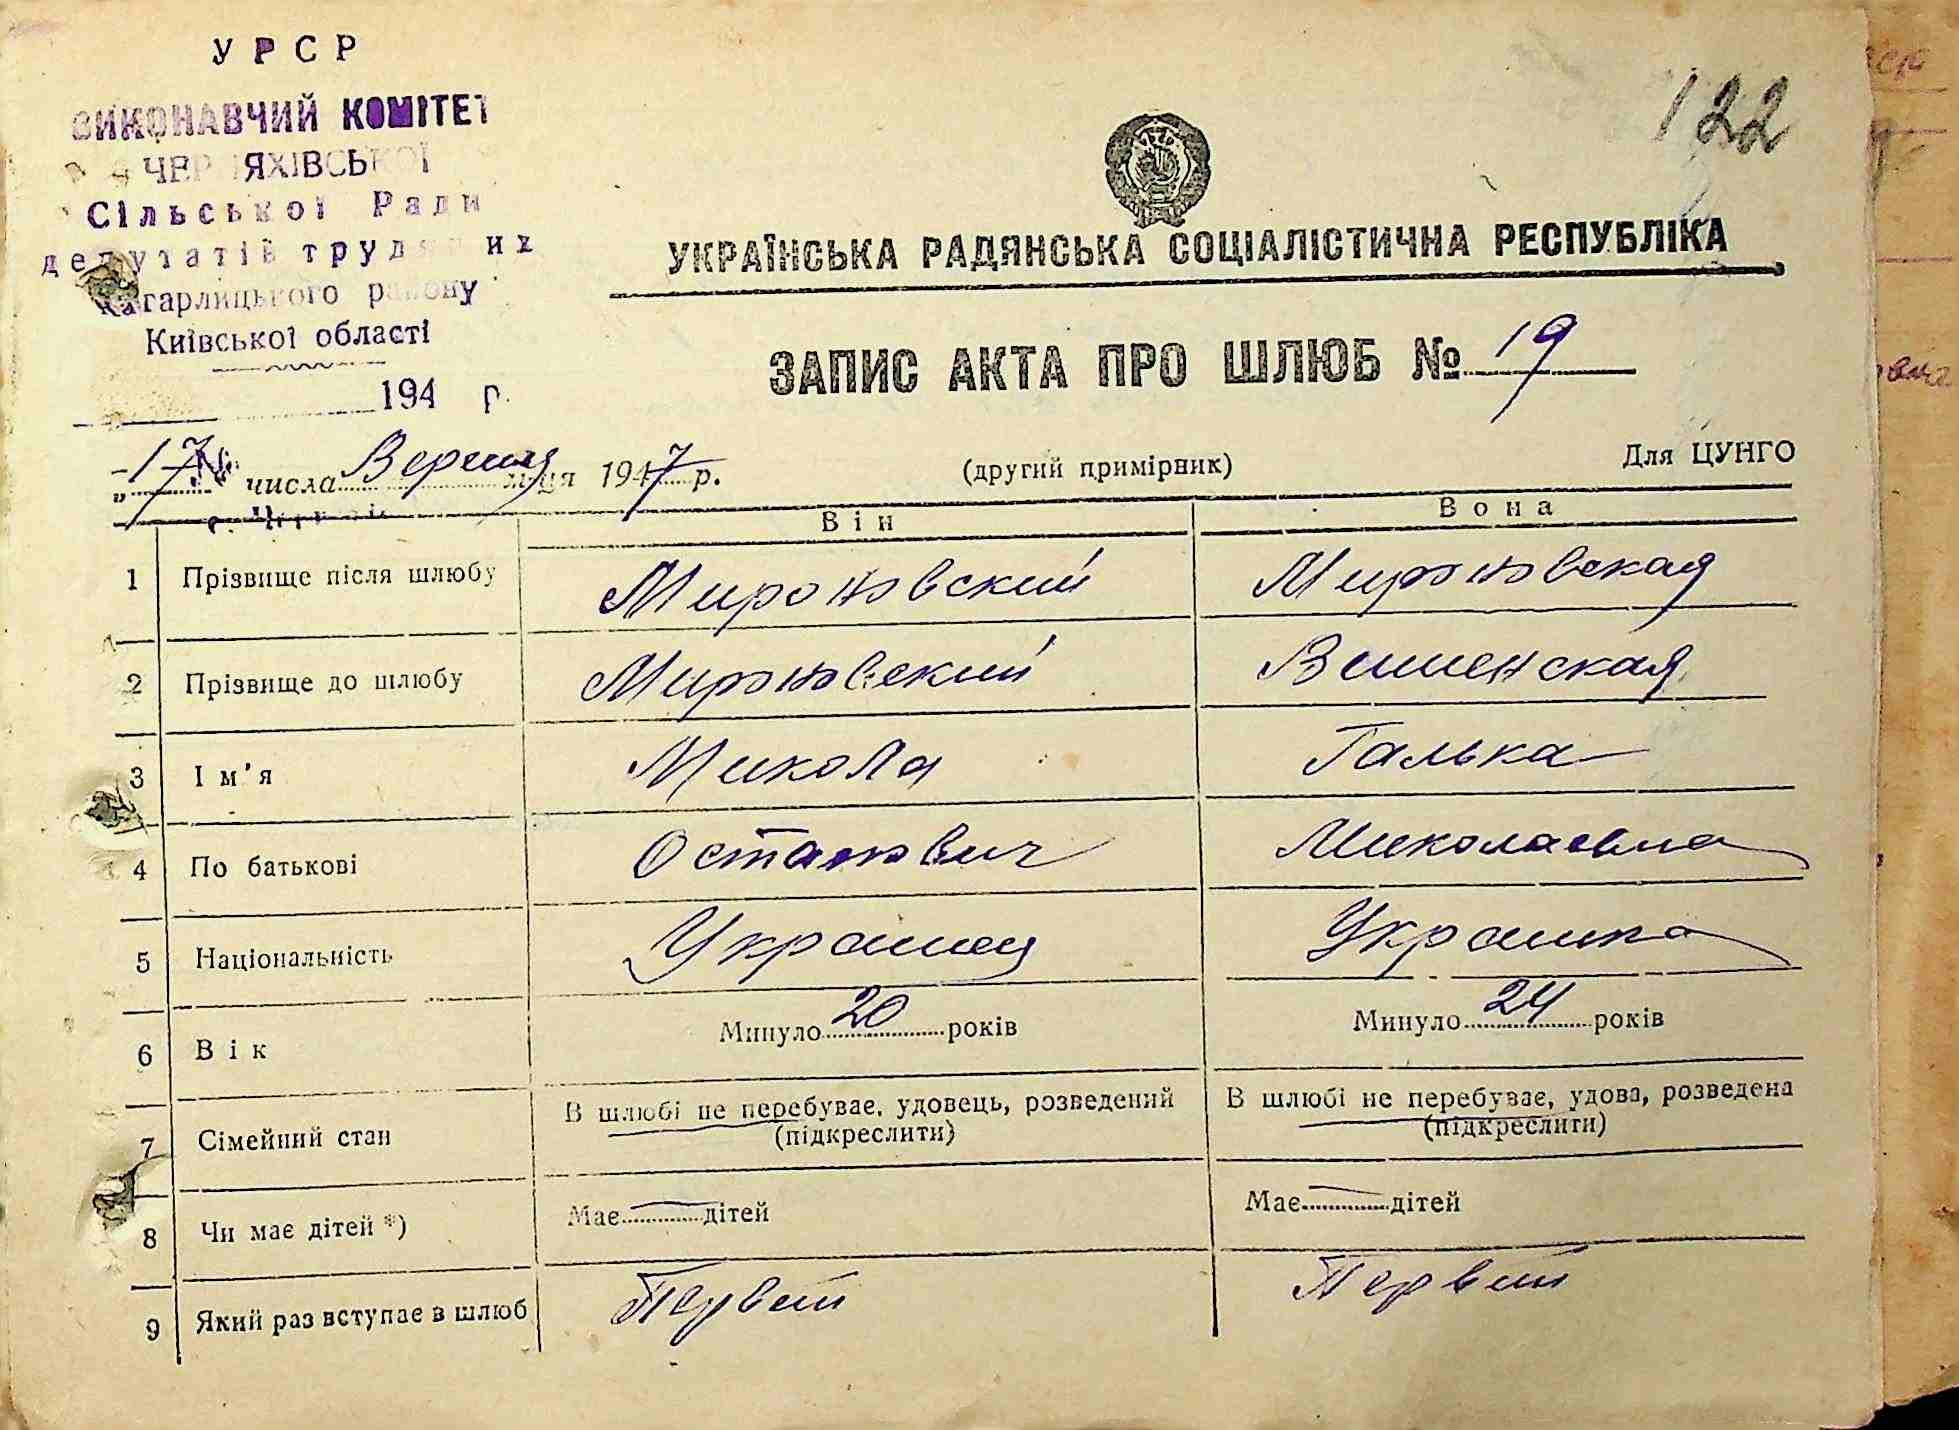 УРСР
ВИКОНАВЧИЙ КОМІТЕТ
ЧЕРНЯХІВСЬКОЇ
Сільської Ради
депутатів трудящих
Кагарлицького району
Київської області
194 р.
122
УКРАЇНСЬКА РАДЯНСЬКА СОЦІАЛІСТИЧНА РЕСПУБЛІКА
ЗАПИС АКТА ПРО ШЛЮБ № 19
„17" числа Вересня м-ця 1947 р. (другий примірник) Для ЦУНГО
Він Вона
1 Прізвище після шлюбу Мироновский Мироновская
2 Прізвище до шлюбу Мироновский Вишенская
3 Ім'я Микола Галька
4 По батькові Остапович Миколаевна
5 Національність Украинец Украинка
6 Вік Минуло 20 років Минуло 24 років
7 Сімейний стан В шлюбі не перебуває, удовець, розведений (підкреслити) В шлюбі не перебуває, удова, розведена (підкреслити)
8 Чи має дітей *) Має — дітей Має — дітей
9 Який раз вступає в шлюб Первий Первий